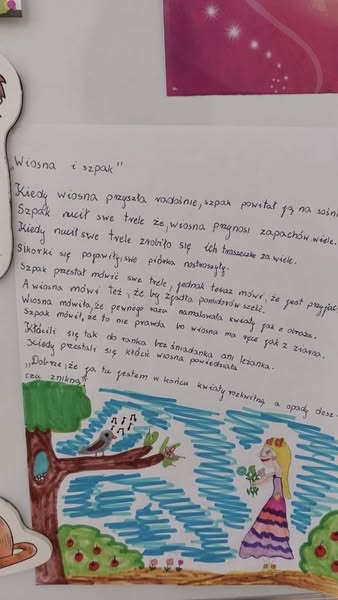 „Wiosna i szpak”
Kiedy wiosna przyszła radośnie, szpak powitał ją na sośni
Szpak nucił swe trele że, wiosna przynosi zapachów wiele.
Kiedy nucił swe trele zrobiło się ich troszeczke za wiele.
Sikorki się pojawiły, swe piórka nastroszyły.
Szpak przestał mówić swe trele, jednak teraz mówi, że jest przyjac
A wiosna mówi też, że by zjadła pomidorów sześć.
Wiosna mówiła, że pewnego razu namalowała kwiaty jak z obrazu.
Szpak mówił, że to nie prawda bo wiosna ma ręce jak z ziarna.
Kłócili się tak do ranka bez śniadanka ani leżanka.
Kiedy przestali się kłócić wiosna powiedziała:
„Dobrze, że ja tu jestem w końcu kwiaty rozkwitną a opady desz-
czu znikną”